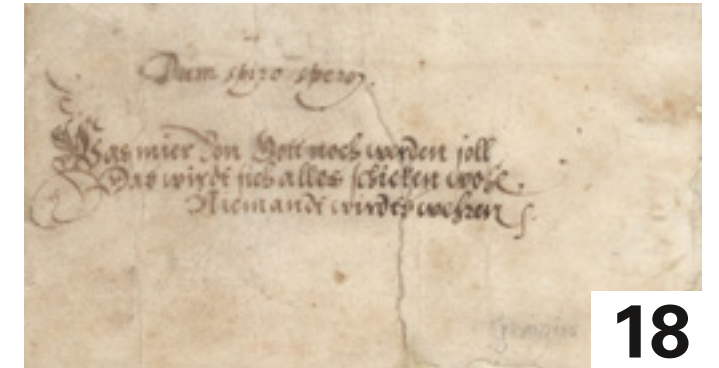 Dum spiro spero.
Was mier von Gott noch werden soll
Das wirdt sich alles schicken wohl.
Niemandt wirdts wehren
Georgius
18